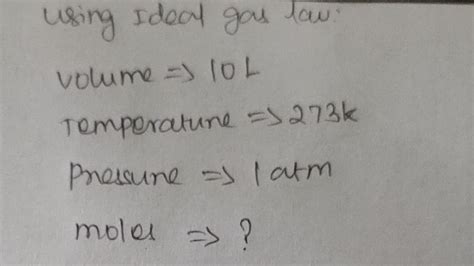 using Ideal gas law:
volume => 10L
Temperature => 273k
Pressure => 1 atm
moles => ?